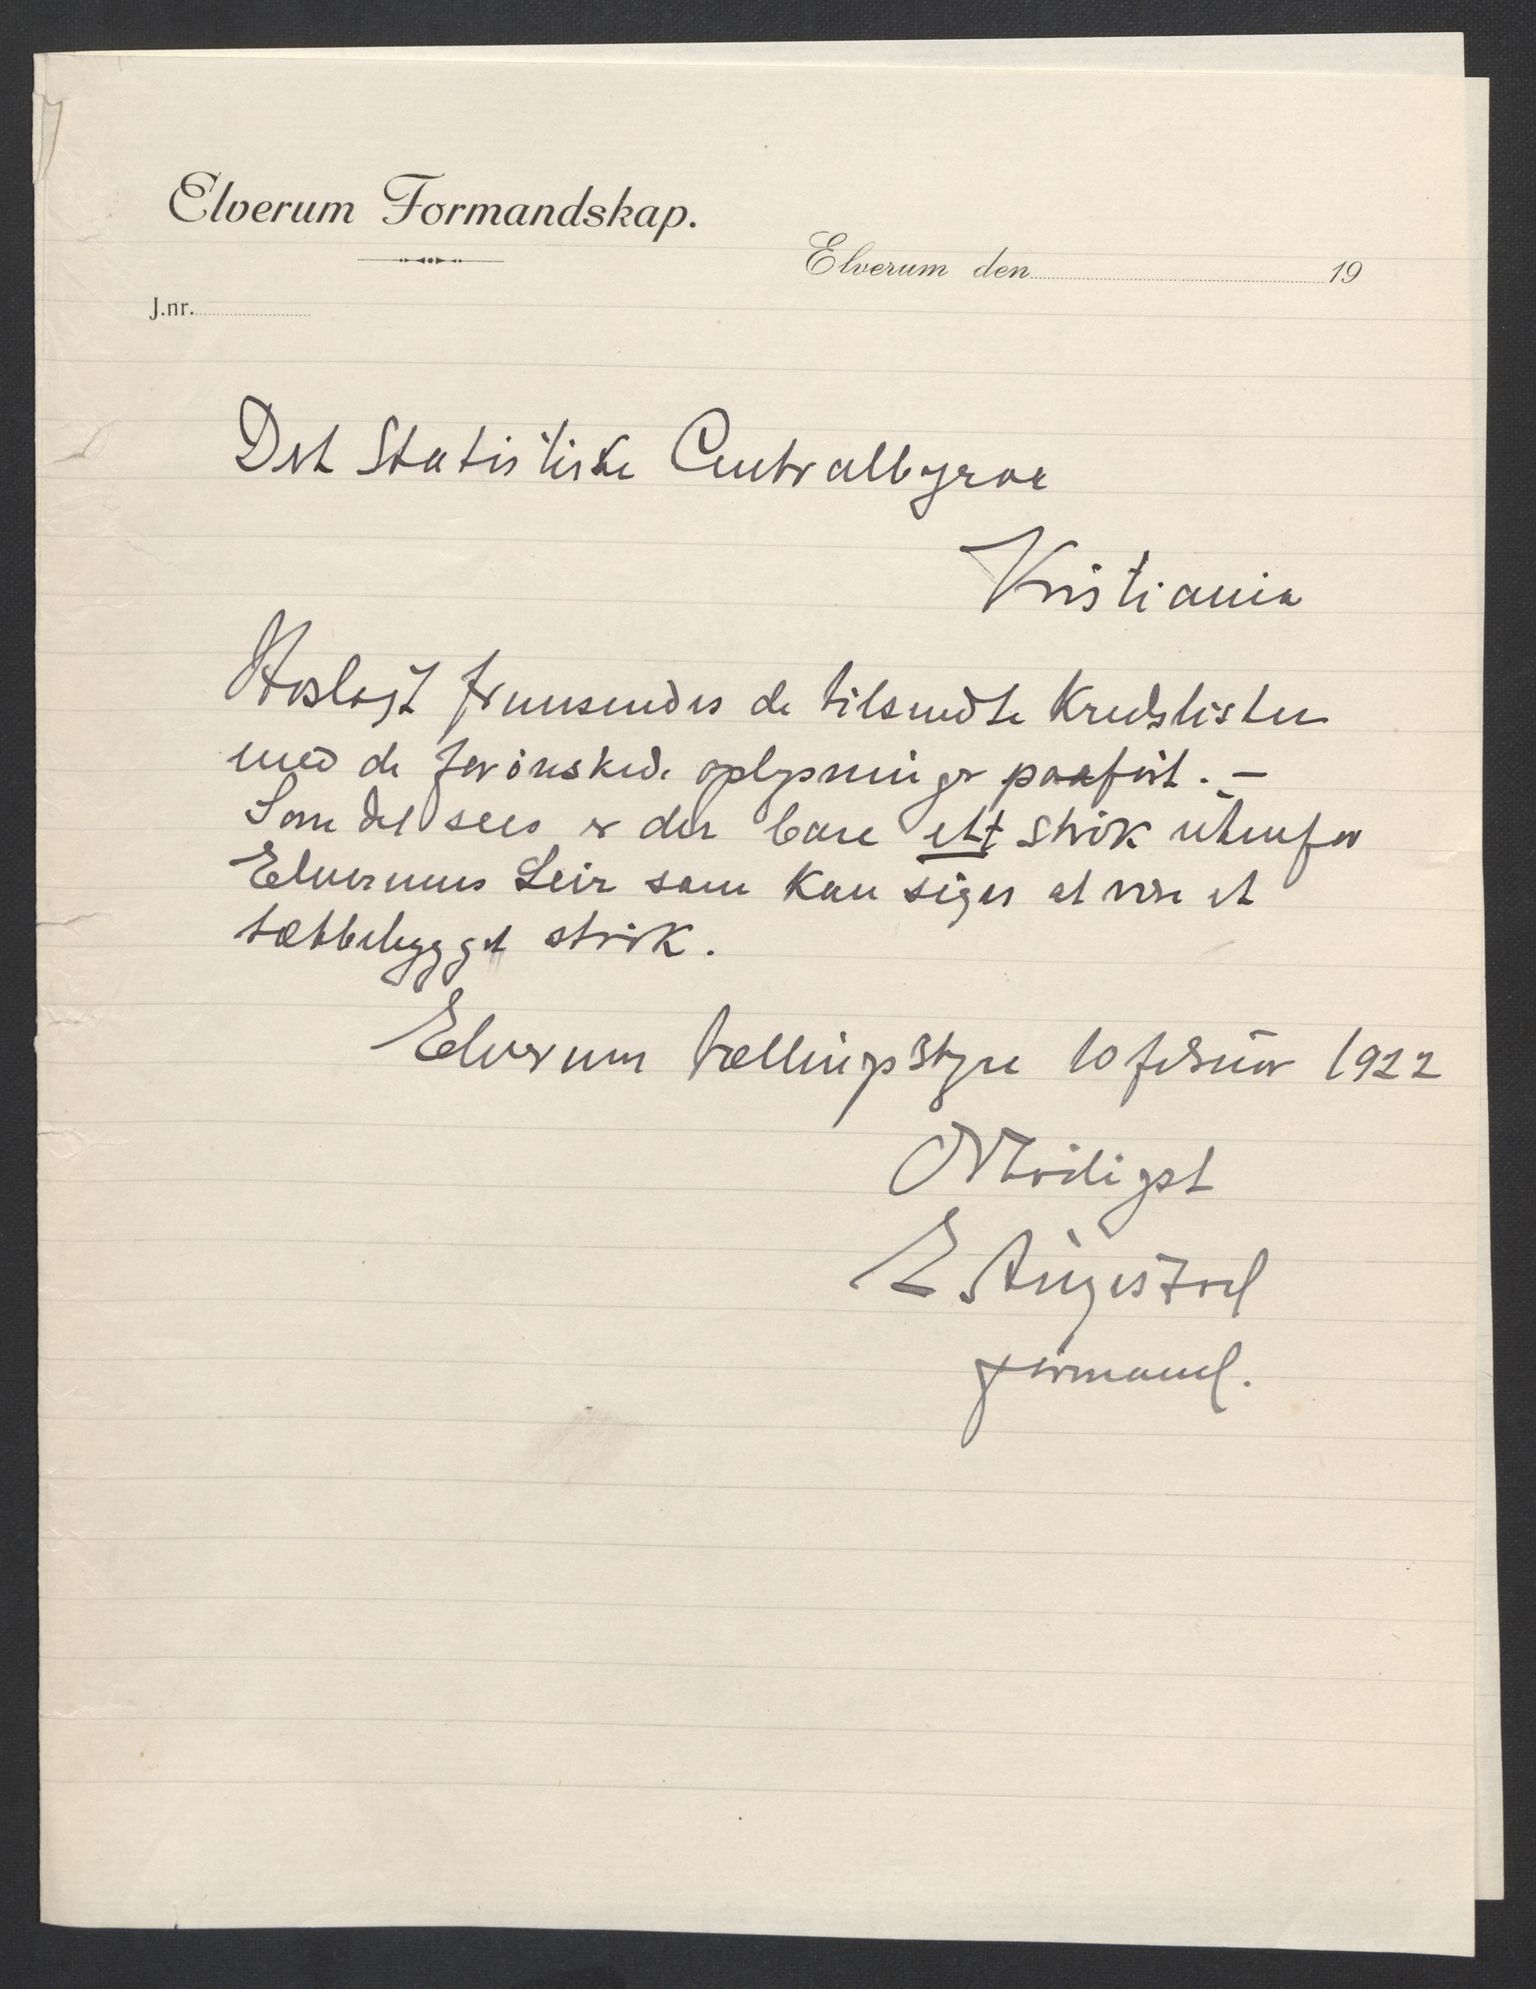 Elverum Formandskap.
Elverum den 19
J.nr.
Det Statistiske Centralbyraa
Kristiania
Hoslagt fremsendes de tilsendte Kredslister
med de forönskede oplysninger paaført. —
Som det sees er der bare ett strök utenfor
Elverums Leir som kan siges at være et
tætbebygget strök.
Elverum tællingsstyre 10 februar 1922
Ærbödigst
E
formand.